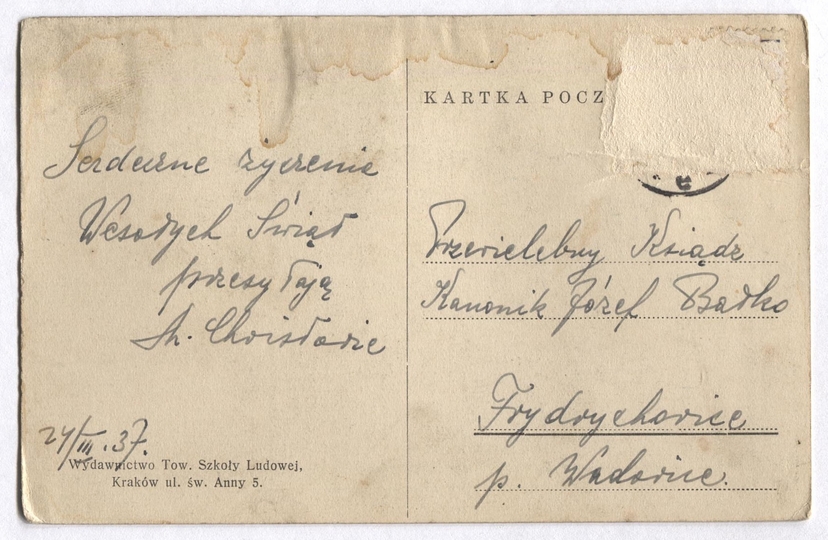 Serdeczne życzenia
Wesołych Świąt
przesyłają
St. Chwistkowie
24/III.37.
Wydawnictwo Tow. Szkoły Ludowej,
Kraków ul. św. Anny 5.
KARTKA POCZ
Przewielebny Ksiądz
Kanonik Józef Bathko
Frydrychowice
p. Wadowice.